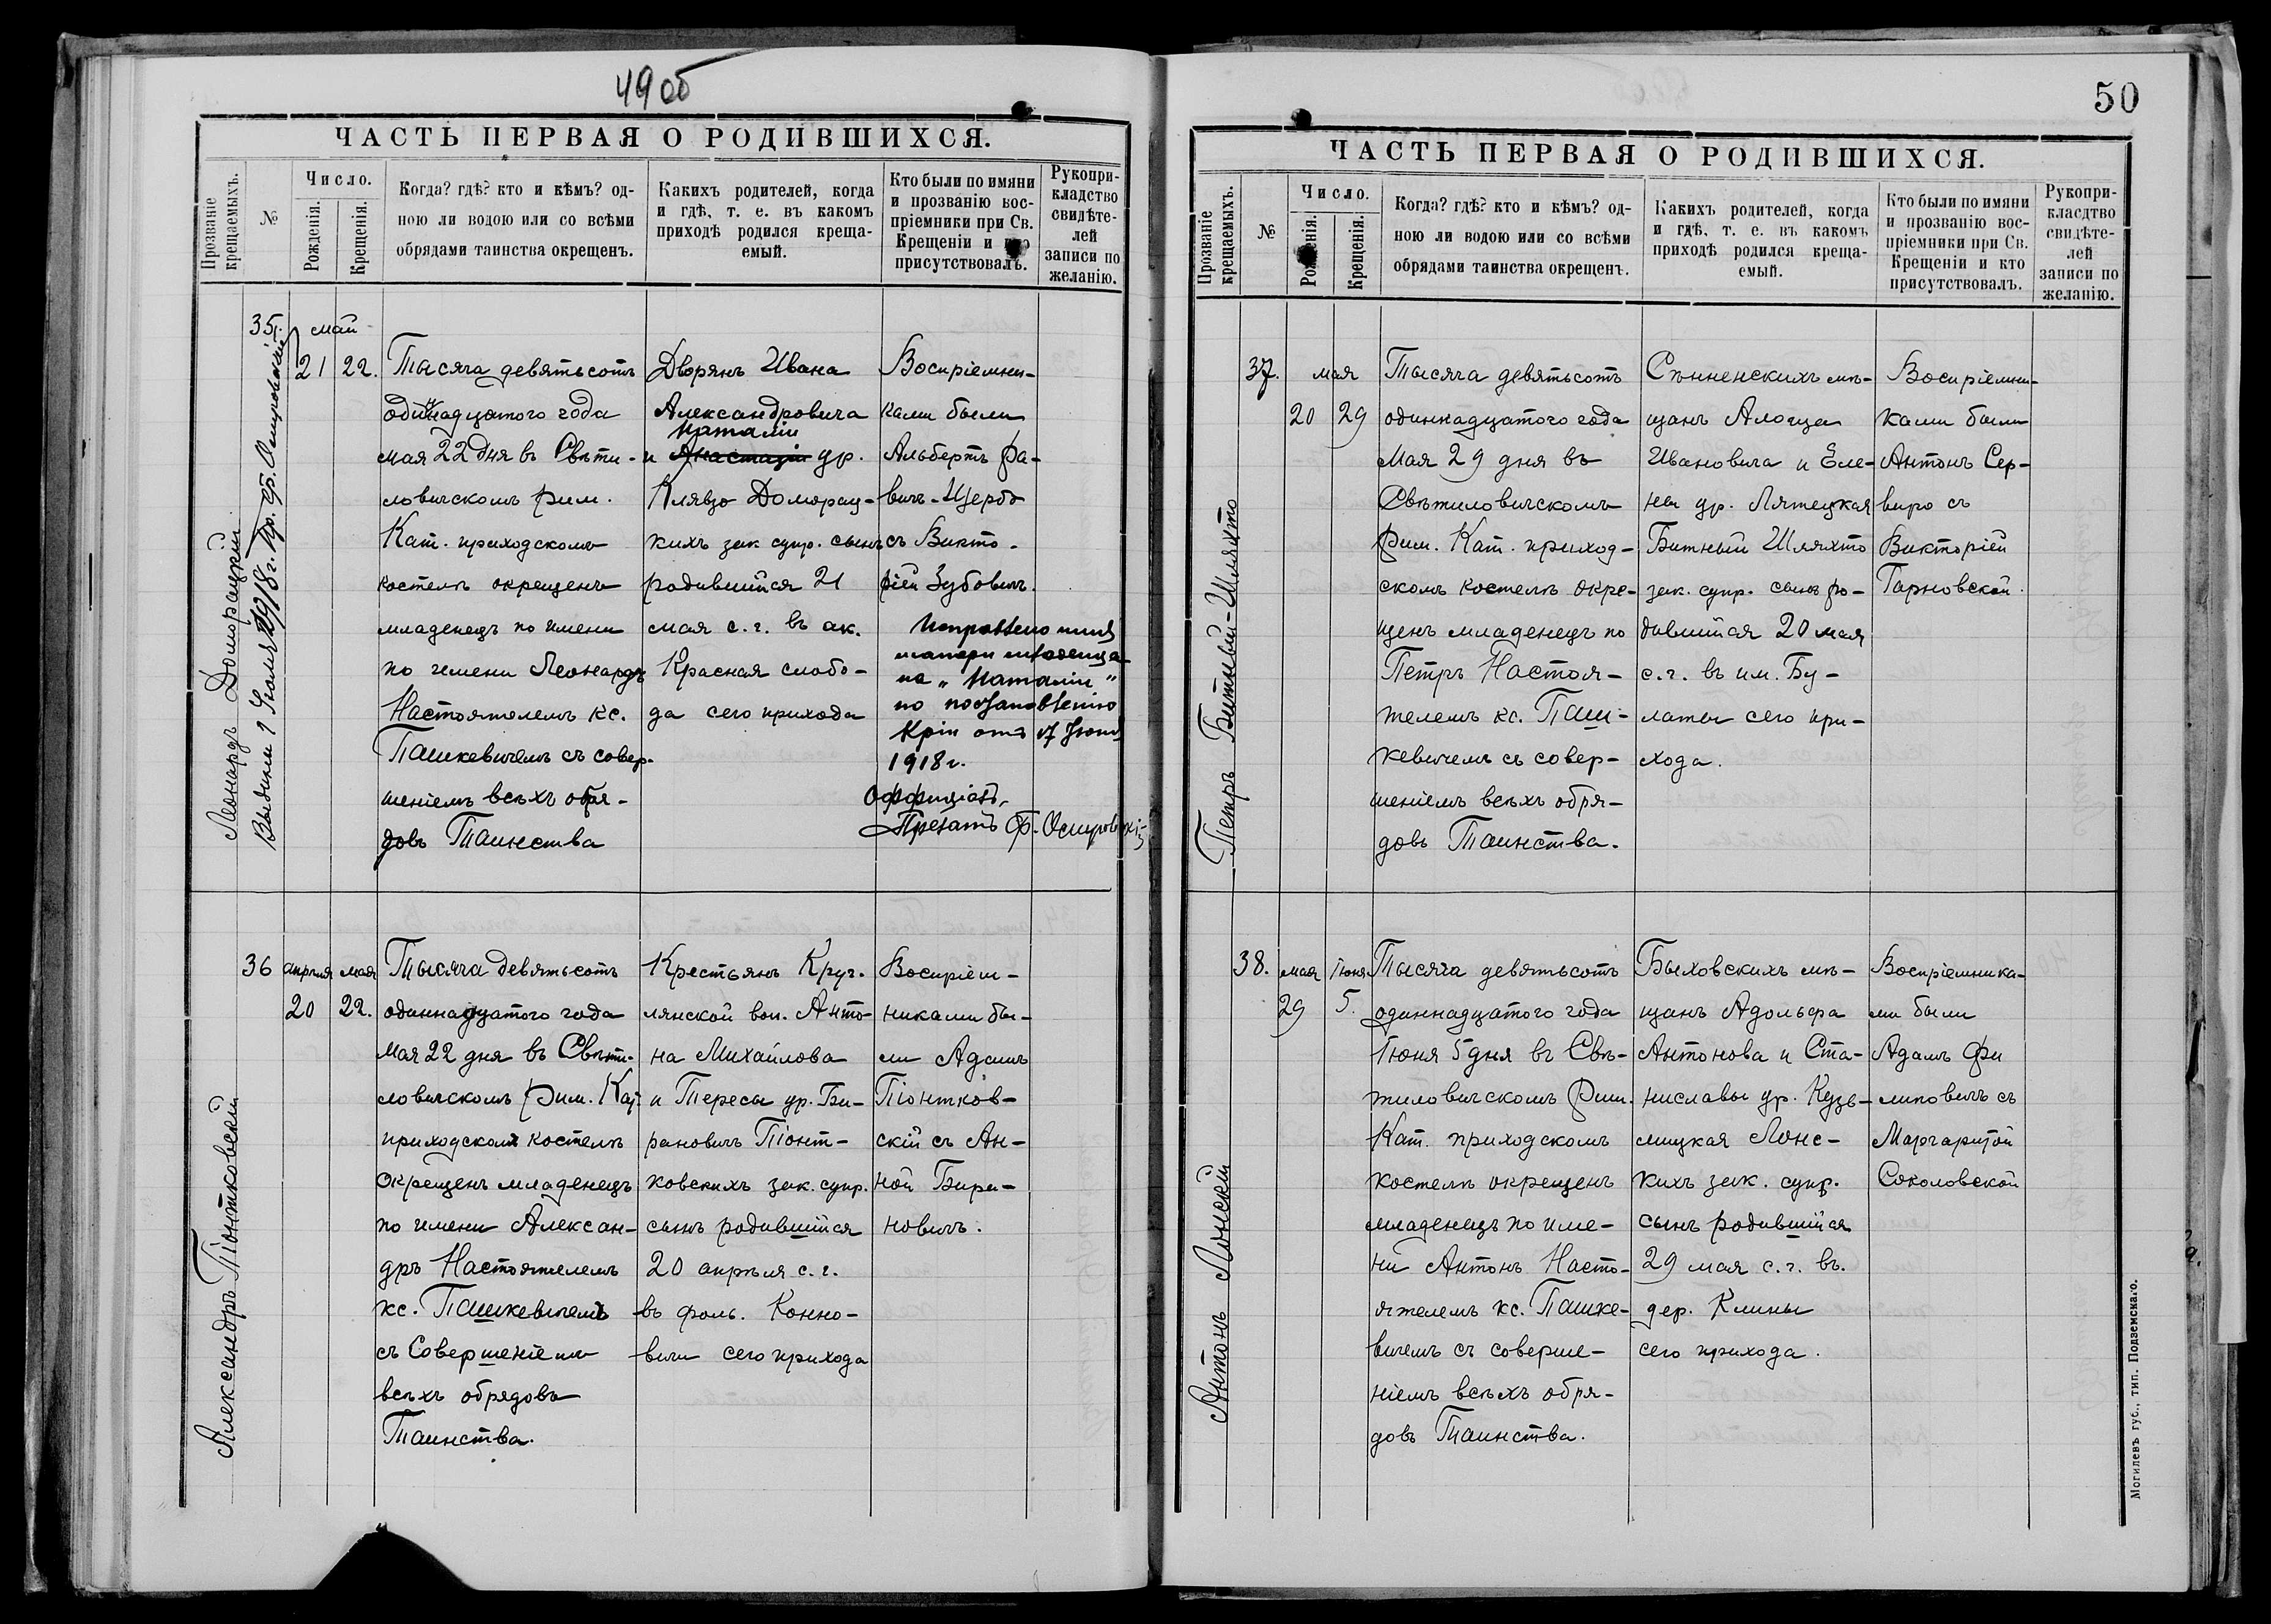 49 об
ЧАСТЬ ПЕРВАЯ О РОДИВШИХСЯ.
Прозваніе
крещаемыхъ.
№
Число.
Рожденія.
Крещенія.
Когда? гдѣ? кто и кѣмъ? од-
ною ли водою или со всѣми
обрядами таинства окрещенъ.
Какихъ родителей, когда
и гдѣ, т. е. въ какомъ
приходѣ родился креща-
емый.
Кто были по имяни
и прозванію вос-
пріемники при Св.
Крещеніи и
присутствовалъ.
Рукопри-
кладство
свидѣте-
лей
записи по
желанію.
Леонардъ Доморацкій
35.
май
21 22.
Тысяча девятьсотъ
одиннадцатого года
мая 22 дня въ Свѣти-
ловичскомъ Рим.
Кат. приходскомъ
костелѣ окрещенъ
младенецъ по имени
по имени Леонардъ
Настоятелемъ кс.
Пашкевичемъ съ совер-
шеніемъ всѣхъ обря-
довъ Таинства
Дворянъ Ивана
Александровича
Наталіи
и Анастазіи ур.
Клявзо Доморац-
кихъ зак супр. сынъ
родившійся 21
мая с. г. въ ок.
Красная слобо-
да сего прихода
Воспріемни-
ками были
Альбертъ Ра-
вичъ-Щербо
съ Викто-
ріей Зубовичъ.
Исправлено имя
матери младенца
на „Наталіи"
по постановленію
Кріи отъ 17 Іюня
1918 г.
Оффиціалъ,
Прелатъ Ф.
36
апрѣля мая
20 22.
Александръ Піонтковскій
Тысяча девятьсотъ
одиннадцатого года
Мая 22 дня въ Свѣти-
ловичскомъ Рим. Кат.
приходскомъ костелѣ
окрещенъ младенецъ
по имени Алексан-
дръ Настоятелемъ
кс. Пашкевичемъ
съ Совершеніемъ
всѣхъ обрядовъ
Таинства.
Крестьянъ Круг-
лянской вол. Анто-
на Михайлова
и Тересы ур. Би-
рановичъ Піонт-
ковскихъ зак. супр.
сынъ родившійся
20 апрѣля с. г.
въ фоль. Конно-
вичи сего прихода
Воспріем-
никами бы-
ли Адамъ
Піонтков-
скій съ Ан-
ной Бира-
новичъ.
50
ЧАСТЬ ПЕРВАЯ О РОДИВШИХСЯ.
Прозваніе
крещаемыхъ.
№
Число.
Рожденія.
Крещенія.
Когда? гдѣ? кто и кѣмъ? од-
ною ли водою или со всѣми
обрядами таинства окрещенъ.
Какихъ родителей, когда
и гдѣ, т. е. въ какомъ
приходѣ родился креща-
емый.
Кто были по имяни
и прозванію вос-
пріемники при Св.
Крещеніи и кто
присутствовалъ.
Рукопри-
класдтво
свидѣте-
лей
записи по
желанію.
Петръ Битный-Шляхто
37.
мая
20 29
Тысяча девятьсотъ
одиннадцатого года
Мая 29 дня въ
Свѣтиловичскомъ
Рим. Кат. приход-
скомъ костелѣ окре-
щенъ младенецъ по
Петръ Настоя-
телемъ кс. Паш-
кевичемъ съ совер-
шеніемъ всѣхъ обря-
довъ Таинства.
Сѣнненскихъ мѣ-
щанъ Алоиза
Ивановича и Еле-
ны ур. Лятецкая
Битный Шляхто
зак. супр. сынъ ро-
дившійся 20 мая
с. г. въ им. Бу-
латы сего при-
хода.
Воспріемни-
ками были
Антонъ Сер-
виро съ
Викторіей
Тарновской.
Антонъ Лонскій
38.
мая іюня
29 5.
Тысяча девятьсотъ
одиннадцатого года
Іюня 5 дня въ Свѣ-
тиловичскомъ Рим.
Кат. приходскомъ
костелѣ окрещенъ
младенецъ по име-
ни Антонъ Насто-
ятелемъ кс. Пашке-
вичемъ съ соверше-
ніемъ всѣхъ обря-
довъ Таинства.
Быховскихъ мѣ-
щанъ Адольфа
Антонова и Ста-
ниславы ур. Кузь-
мицкая Лонс-
кихъ зак. супр.
сынъ родившійся
29 мая с. г. въ
дер. Клины
сего прихода.
Воспріемника-
ми были
Адамъ Фи
липовичъ съ
Маргаритой
Соколовской
Могилевъ губ., тип. Подземскаго.